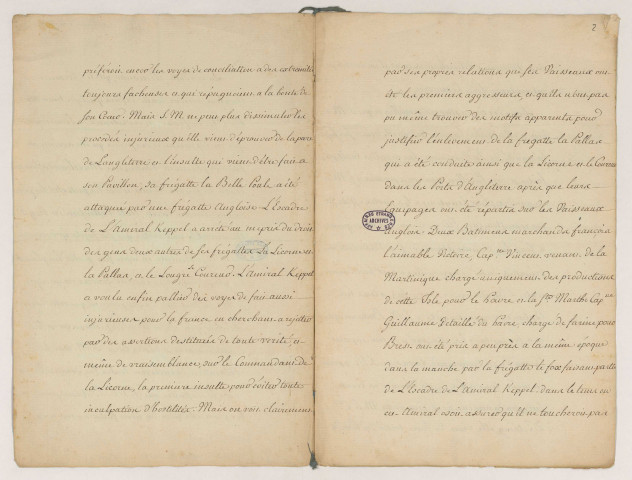 préferoit encor les voyes de conciliation a des extremités
toujours facheuses et qui répugnoient a la bonté de
son Cœur. Mais S. M. ne peut plus dissimuler les
procédés injurieux qu'elle vient d'éprouver de la part
de L'angleterre et l'insulte qui vient d'être faite a
son Pavillon, sa frégatte la Belle Poule a été
attaquée par une frégatte Angloise. L'Escadre
de L'Amiral Keppel a arreté au mépris du droit
des gens deux autres de ses frégattes La Licorne et
la Pallas, et le Lougre le Coureur. L'Amiral Keppel
a voulu enfin pallier des voyes de fait aussi
injurieuses pour la france en cherchant a rejetter
par des assertions destituées de toute verité, et
même de vraisemblance, sur le Commandant de
La Licorne, la premiere insulte pour éviter toute
inculpation d'hostilités. Mais on voit clairement
2
par ses propres relations que ses Vaisseaux ont
été les premiers aggresseurs, et qu'elle n'a pas
pu même trouver des motifs apparents pour
justifier l'enlevement de la frégatte la Pallas
qui a été conduite ainsi que la Licorne et le Coureur
dans les Ports d'Angleterre après que leurs
Equipages ont été répartis sur les Vaisseaux
anglois. Deux Batimens marchands françois
l'aimable Victoire, Cap.ne Vincent, venant de la
Martinique chargé uniquement des productions
de cette Isle pour le havre et la Ste Marthe Cap.ne
Guillaume Détaille du havre, chargé de farine pour
Brest ont été pris a peu près a la même époque
dans la manche par la frégatte le fox faisant partie
de L'Escadre de L'Amiral Keppel, dans le tems où
cet Amiral osoit assurer qu'il ne toucheroit pas
ARCHIVES